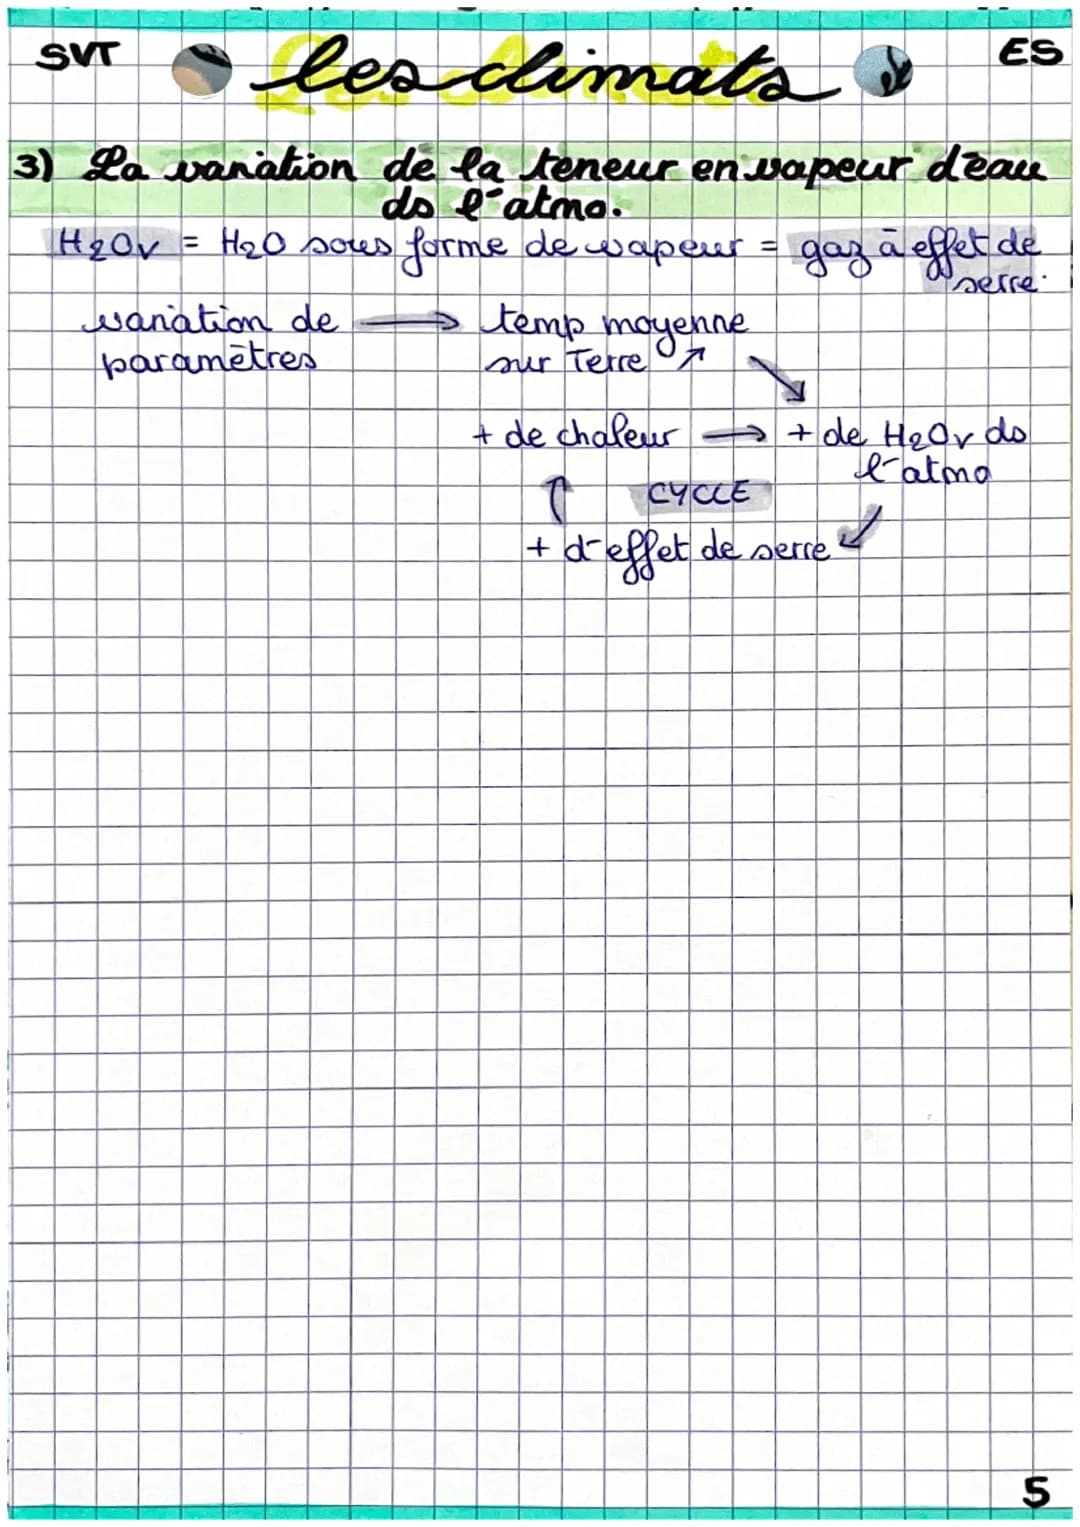 SVT
les climats
ES
3) La variation de la teneur en vapeur d'eau
ds l'atmo.
H2Ov = H2O sous forme de vapeur = gaz à effet de
serre.
variation de → temp moyenne
paramètres sur Terre ↗
+ de chaleur → + de H2Ov ds
l'atmo
CYCLE
+ d'effet de serre
5